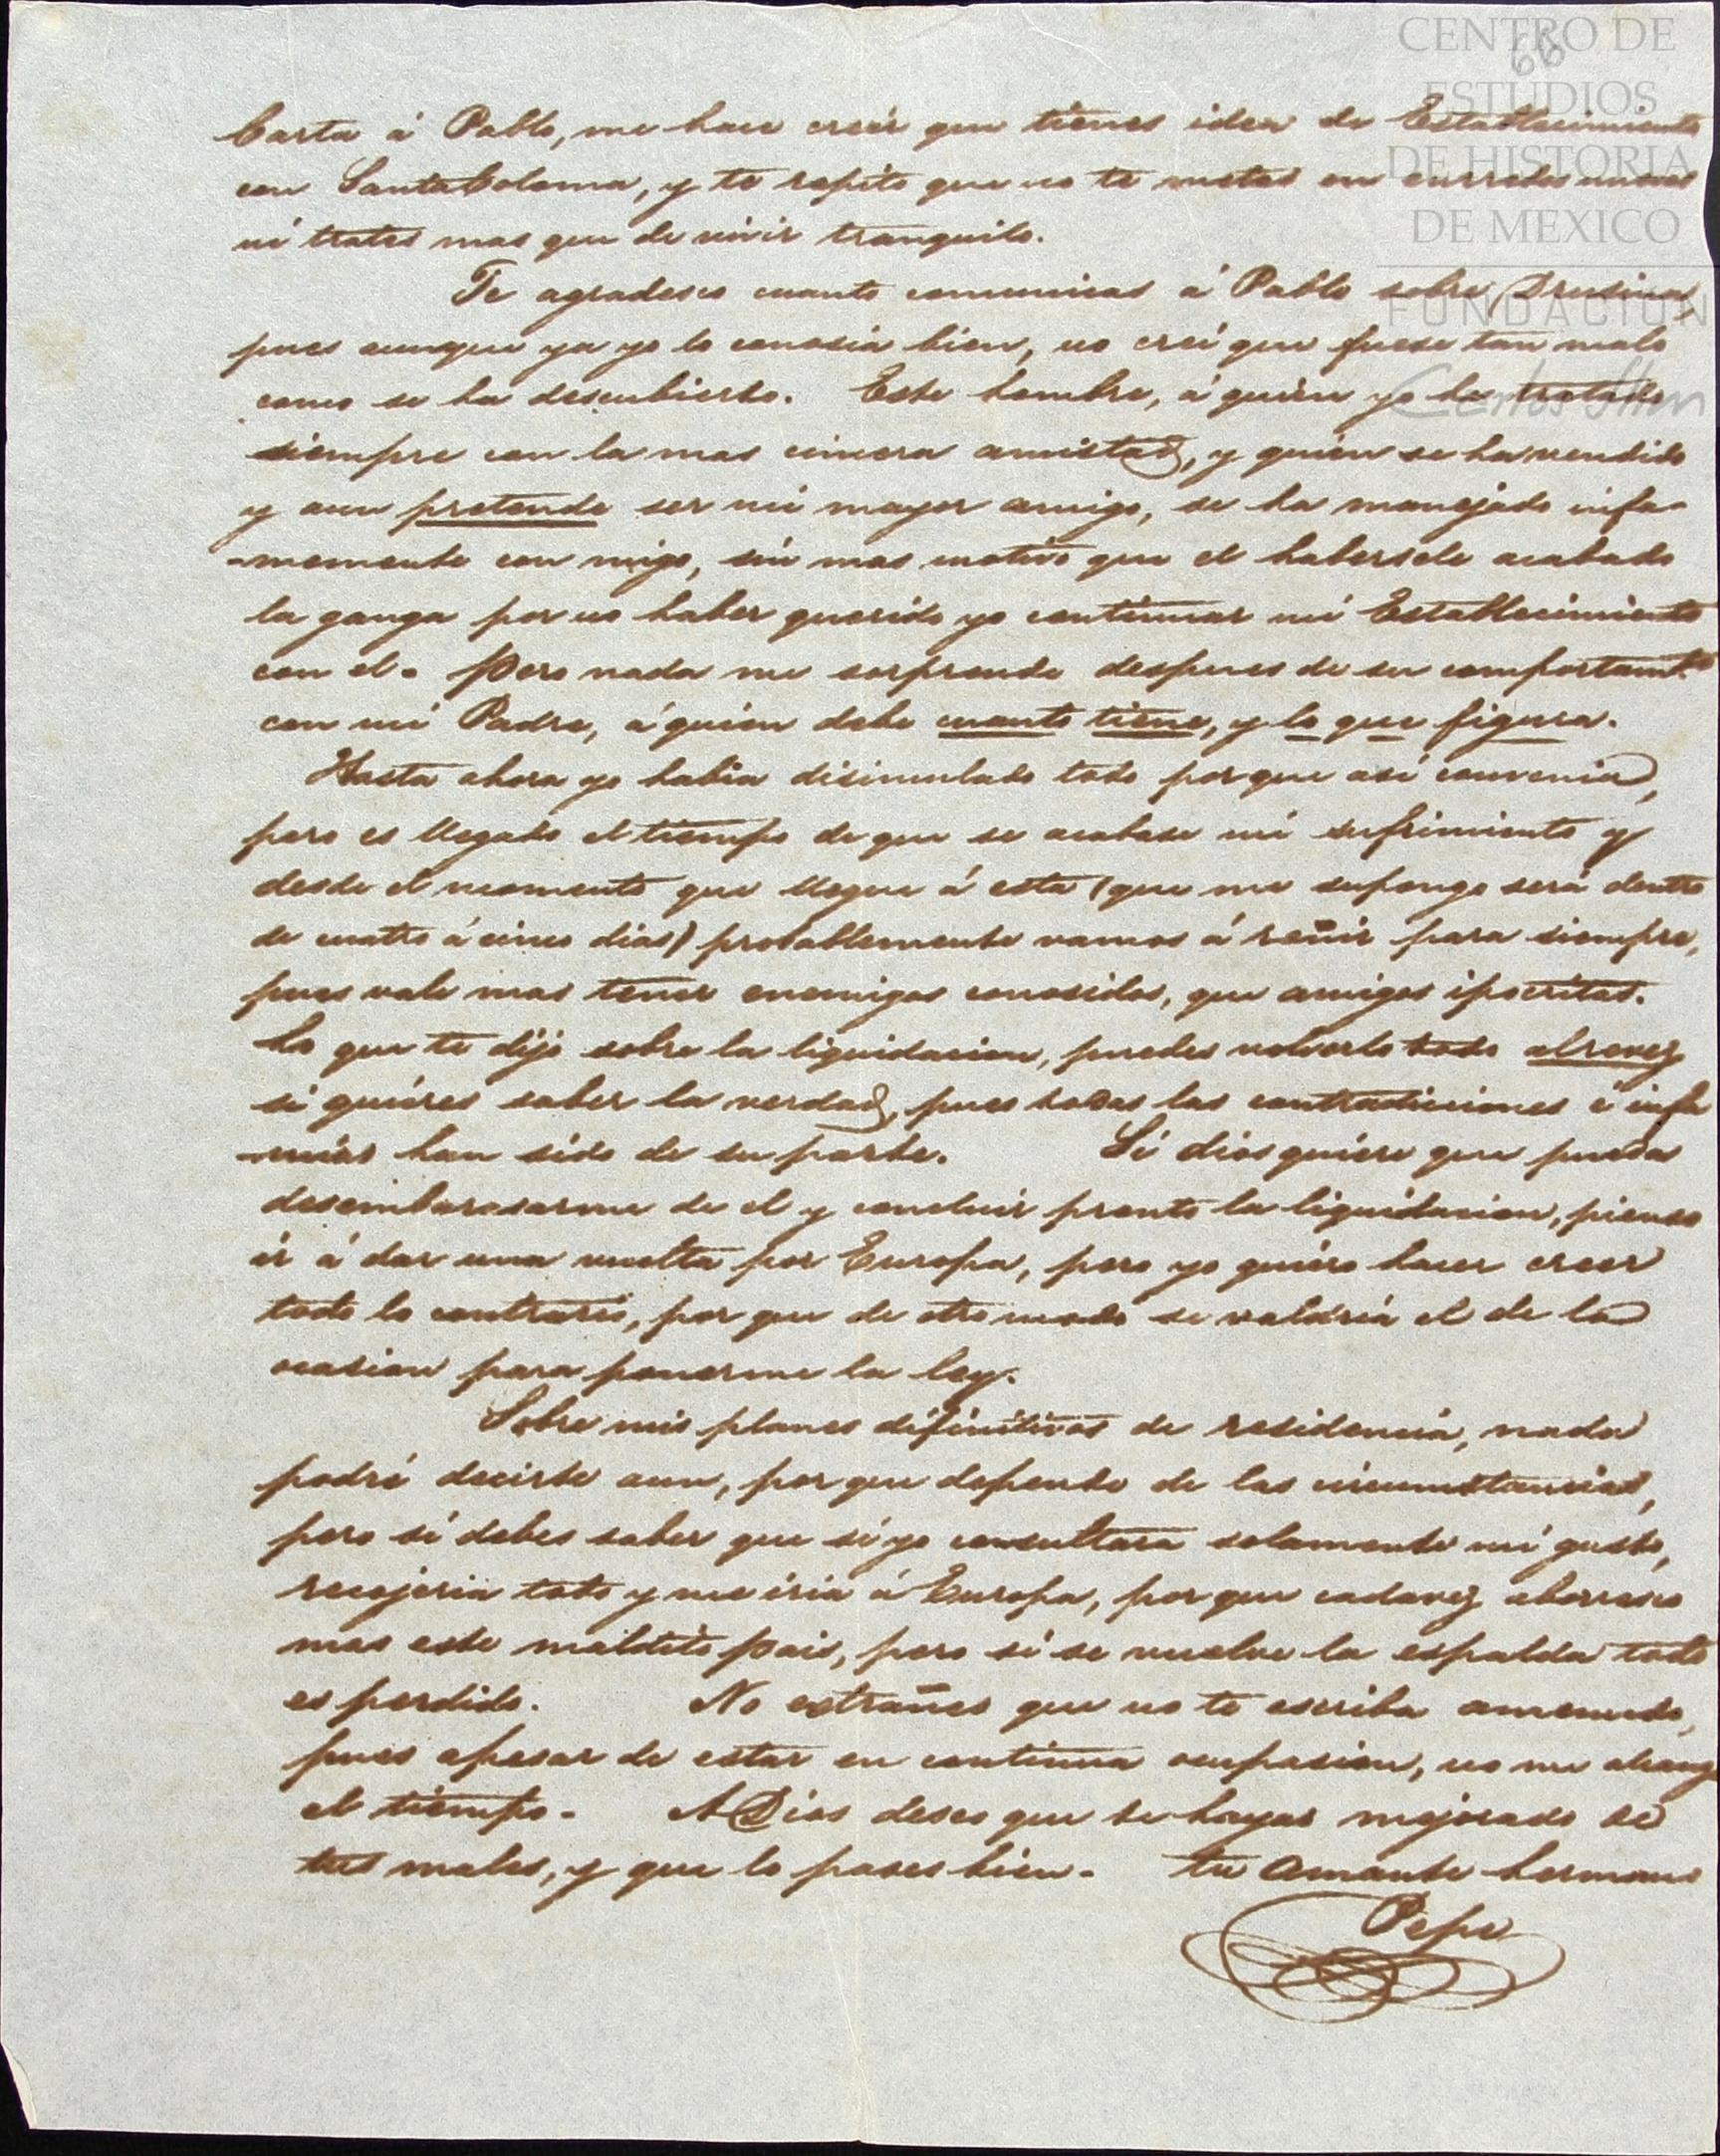 CENTRO DE
ESTUDIOS
DE HISTORIA
DE MEXICO
FUNDACIÓN
Carlos Slim
66
Carta á Pablo, me hace creér que tienes idea de Establecimiento
con Santa Coloma, y te repito que no te metas en enrredos nuevos
ni trates mas que de vivir tranquilo.
Te agradesco cuanto comunicas á Pablo sobre Drusina
pues aunque ya yo lo conosia bien, no creí que fuese tan malo
como se ha descubierto. Este hombre, á quien yo he tratado
siempre con la mas cincera amistad, y quién se ha vendido
y aun pretende ser mi mayor amigo, se ha manejado infa-
-memente con migo, sin mas motivo que el habersele acabado
la ganga por no haber querido yo continuar mi Establecimiento
con el. Pero nada me sorprende despues de su comportamto
con mi Padre, á quien debe cuanto tiene, y lo que figura.
Hasta ahora yo habia disimulado todo porque así convenia,
pero es llegado el tiempo de que se acabase mi sufrimiento y
desde el momento que llegue á esta (que me supongo será dentro
de cuatro á cinco dias) probablemente vamos á reñir para siempre,
pues vale mas tener enemigos conosidos, que amigos ipocritas.
Lo que te dijo sobre la liquidacion, puedes volverlo todo alrevez
si quiéres saber la verdad, pues todas las contradiciones é infa
-mias han sido de su parte. Si dios quiére que pueda
desembarasarme de el y concluir pronto la liquidacion, pienso
ir á dar una vuelta por Europa, pero yo quiéro hacer creer
todo lo contrario, por que de otro modo se valdría el de la
ocasion para ponerme la ley.
Sobre mis planes difinitivos de residencia, nada
podré decirte aun, por que depende de las circumstancias,
pero sí debes saber que si yo consultara solamente mi gusto,
recojeria todo y me iria á Europa, por que cadavez aborresco
mas este maldito pais, pero si se vuelve la espalda todo
es perdido. No extrañes que no te escriba amenudo,
pues apesar de estar en continua ocupasion, no me alcanza
el tiempo. A Dios deseo que te hayas mejorado de
tus males, y que lo pases bien. tu amante hermano
Pepe